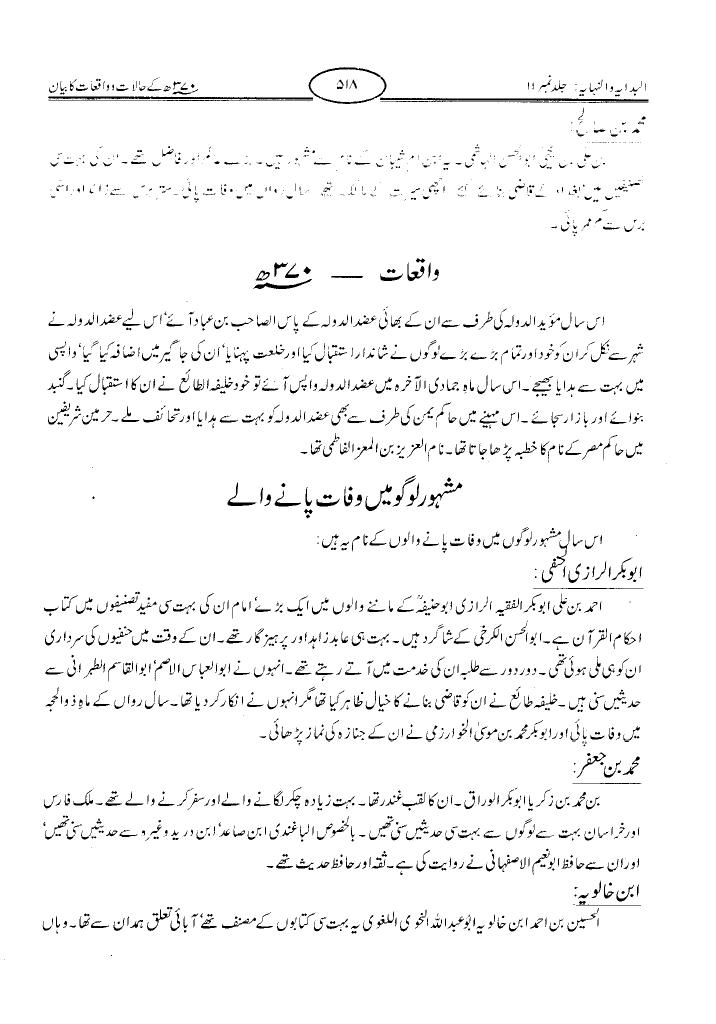 البدایہ والنہایہ: جلد نمبر ۱۱
۵۱۸
۳۷۰ھ کے حالات و واقعات کا بیان
محمد بن صالح:
بن علی بن یحییٰ ابوالحسن الہاشمی۔ یہ ابن ام شیبان کے نام سے مشہور ہیں۔ بڑے عالم اور فاضل تھے۔ ان کی بہت سی
تصنیفیں ہیں بغداد کے قاضی بنائے گئے اچھی سیرت کے مالک تھے سال رواں میں وفات پائی۔ ستر برس سے زائد اور اسی
برس سے کم عمر پائی۔
واقعات — ۳۷۰ھ
اس سال مؤید الدولہ کی طرف سے ان کے بھائی عضد الدولہ کے پاس الصاحب بن عباد آئے' اس لیے عضد الدولہ نے
شہر سے نکل کر ان کو خود اور تمام بڑے بڑے لوگوں نے شاندار استقبال کیا اور خلعت پہنایا' ان کی جاگیر میں اضافہ کیا گیا' واپسی
میں بہت سے ہدایا بھیجے۔ اس سال ماہ جمادی الآخرہ میں عضد الدولہ واپس آئے تو خود خلیفہ الطائع نے ان کا استقبال کیا۔ گنبد
بنوائے اور بازار سجائے۔ اس مہینے میں حاکم یمن کی طرف سے بھی عضد الدولہ کو بہت سے ہدایا اور تحائف ملے۔ حرمین شریفین
میں حاکم مصر کے نام کا خطبہ پڑھا جاتا تھا۔ نام العزیز بن المعز الفاطمی تھا۔
مشہور لوگو میں وفات پانے والے
اس سال مشہور لوگوں میں وفات پانے والوں کے نام یہ ہیں:
ابوبکر الرازی الحنفی:
احمد بن علی ابوبکر الفقیہ الرازی ابوحنیفہؒ کے ماننے والوں میں ایک بڑے' امام ان کی بہت سی مفید تصنیفوں میں کتاب
احکام القرآن ہے۔ ابوالحسن الکرخی کے شاگرد ہیں۔ بہت ہی عابد زاہد اور پرہیزگار تھے۔ ان کے وقت میں حنفیوں کی سرداری
ان کو ہی ملی ہوئی تھی۔ دور دور سے طلبہ ان کی خدمت میں آتے رہتے تھے۔ انہوں نے ابوالعباس الاصم' ابوالقاسم الطبرانی سے
حدیثیں سنی ہیں۔ خلیفہ طائع نے ان کو قاضی بنانے کا خیال ظاہر کیا تھا مگر انہوں نے انکار کر دیا تھا۔ سال رواں کے ماہ ذوالحجہ
میں وفات پائی اور ابوبکر محمد بن موسیٰ الخوارزمی نے ان کے جنازہ کی نماز پڑھائی۔
محمد بن جعفر:
بن محمد بن زکریا ابوبکر الوراق۔ ان کا لقب غندر تھا۔ بہت زیادہ چکر لگانے والے اور سفر کرنے والے تھے۔ ملک فارس
اور خراسان بہت سے لوگوں سے بہت سی حدیثیں سنی تھیں۔ بالخصوص الباغندی ابن صاعد' ابن درید وغیرہ سے حدیثیں سنی تھیں'
اور ان سے حافظ ابونعیم الاصفہانی نے روایت کی ہے۔ ثقہ اور حافظ حدیث تھے۔
ابن خالویہ:
الحسین بن احمد ابن خالویہ ابوعبداللہ الخوی اللغوی یہ بہت سی کتابوں کے مصنف تھے' آبائی تعلق ہمدان سے تھا۔ وہاں